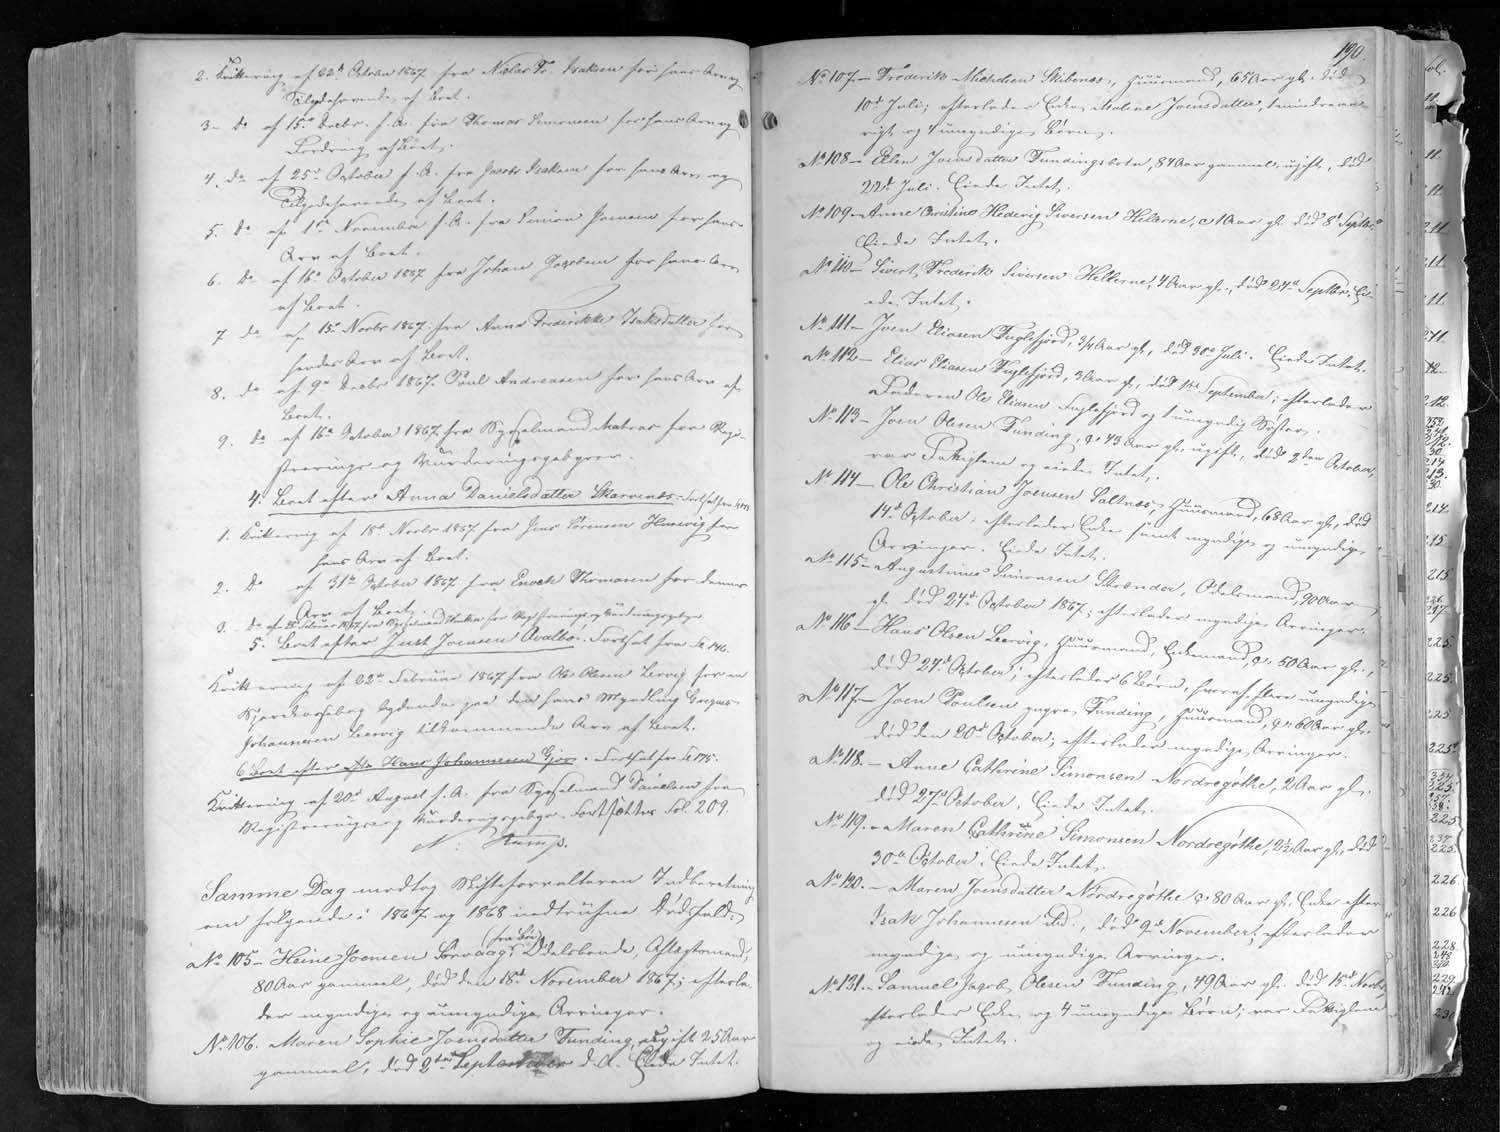 2. Kvittering af 22de October 1867 fra Niclas Fr. Isaksen for hans Arv og
Tilgodehavende af Boet.
3. Do af 15de Decbr. s. A. fra Thomas Simonsen for hans Arv og
Fordring af Boet.
4. Do af 25de October s. A. fra Jacob Isaksen for hans Arv og
Tilgodehavende af Boet.
5. Do af 1ste November s. A. fra Simon Joensen for hans
Arv af Boet.
6. Do af 16de October 1867 fra Johan Jacobsen for hans Arv
af Boet.
7 do af 15de Novbr 1867 fra Anna Frederikke Isaksdatter for
hendes Arv af Boet.
8. do af 9de Decbr 1867. Poul Andreasen for hans Arv af
Boet.
9. do af 16de October 1867 fra Sysselmand Matras for Regi-
strerings og Vurderingsgebyrer.
4. Boet efter Anna Danielsdatter Skarvenes. Fortsat fra
1. Kvittering af 18de Novbr 1867 fra Jens Sørensen Hervig for
hans Arv af Boet.
2. Do af 31te October 1867 fra Enoch Thomasen for dennes
Arv af Boet.
3. Do af 1867 fra Sysselmand for Registrerings og Vurderingsgebyr
5. Boet efter Just Joensen Qvalbø. Fortsat fra Fol 146.
Kvittering af 22de Februar 1867 fra Ole Olesen Leervig for en
Sparekassebog lydende paa den hans Myndling
Johannesen Leervig tilkommende Arv af Boet.
6 Boet efter Hans Johannesen Gjov. Fortsat fra Fol 175.
Kvittering af 20de August s. A. fra Sysselmand Danielsen for
Registrerings og Vurderingsgebyr. Fortsættes Fol. 209.
Samme Dag modtog Skifteforvalteren Indberetning
om følgende i 1867 og 1868 indtrufne Dødsfald:
No 105 - Heine Joensen Sørvaag, (fra Bø) Odelsbonde, Aftægtsmand,
80 Aar gammel, død den 18de November 1867; efterla-
der myndige og umyndige Arvinger.
No 106. Maren Sophie Joensdatter Funding, ugift 25 Aar
gammel, død 2den September d. A. Eiede Intet.
190.
No 107 - Frederik Michelsen Skibenes, Huusmand, 65 Aar gl. død
10de Juli; efterlader Enke Malene Joensdatter, 1 mindreaa-
rigt og 4 umyndige Børn.
No 108 - Elen Joensdatter Fundingsbotn, 84 Aar gammel, ugift, død
22de Juli. Eiede Intet.
No 109 - Anne Christine Hedevig Siversen Hellerne, c 1 Aar gl. død 8de Septbr.
Eiede Intet.
No 110 - Sivert Frederik Siversen Hellerne, 4 Aar gl., død 24de Septbr. Ei-
ede Intet.
No 111 - Joen Eliasen Fuglefjord, 3/4 Aar gl., død 30te Juli. Eiede Intet.
No 112 - Elias Eliasen Fuglefjord, 3 Aar gl, død 1ste September; efterlader
Faderen Ole Eliasen Fuglefjord og 1 umyndig Søster.
No 113 - Joen Olesen Funding, c. 43 Aar gl., ugift, død 2den October,
var Fattiglem og eiede Intet.
No 114 - Ole Christian Joensen Saltnes, Huusmand, 68 Aar gl., død
14de October, efterlader Enke samt myndige og umyndige
Arvinger. Eiede Intet.
No 115 - Augustinus Simonsen Strænder, Odelsmand, 90 Aar
gl. død 24de October 1867; efterlader myndige Arvinger.
No 116 - Hans Olsen Leervig, Huusmand, Enkemand, c. 50 Aar gl.,
død 27de October; efterlader 6 Børn, hvoraf flere umyndige
No 117. - Joen Poulsen yngre Funding, Huusmand, c. 60 Aar gl.
død den 20de October; efterlader myndige Arvinger.
No 118. - Anne Cathrine Simonsen Nordregøthe, 2 Aar gl.
død 27de October. Eiede Intet.
No 119. - Maren Cathrine Simonsen Nordregøthe, 2½ Aar gl., død
30te October. Eiede Intet.
No 120. - Maren Joensdatter Nordregøthe c. 80 Aar gl. Enke efter
Isak Johannesen ibd., død 9de November, efterlader
myndige og umyndige Arvinger.
No 121. - Samuel Jacob Olesen Funding, 49 Aar gl. død 15de Novbr,
efterlader Enke og 4 umyndige Børn; var Fattiglem
og eiede Intet.